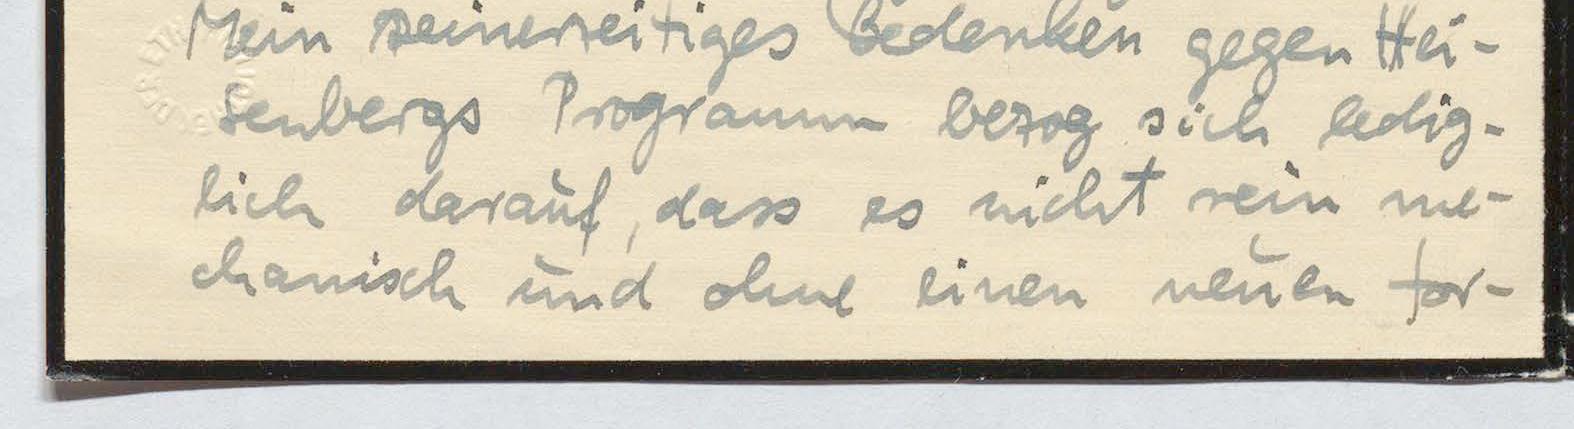 Mein seinerzeitiges Bedenken gegen Hei-
senbergs Programm bezog sich ledig-
lich darauf, dass es nicht rein me-
chanisch und ohne einen neuen for-